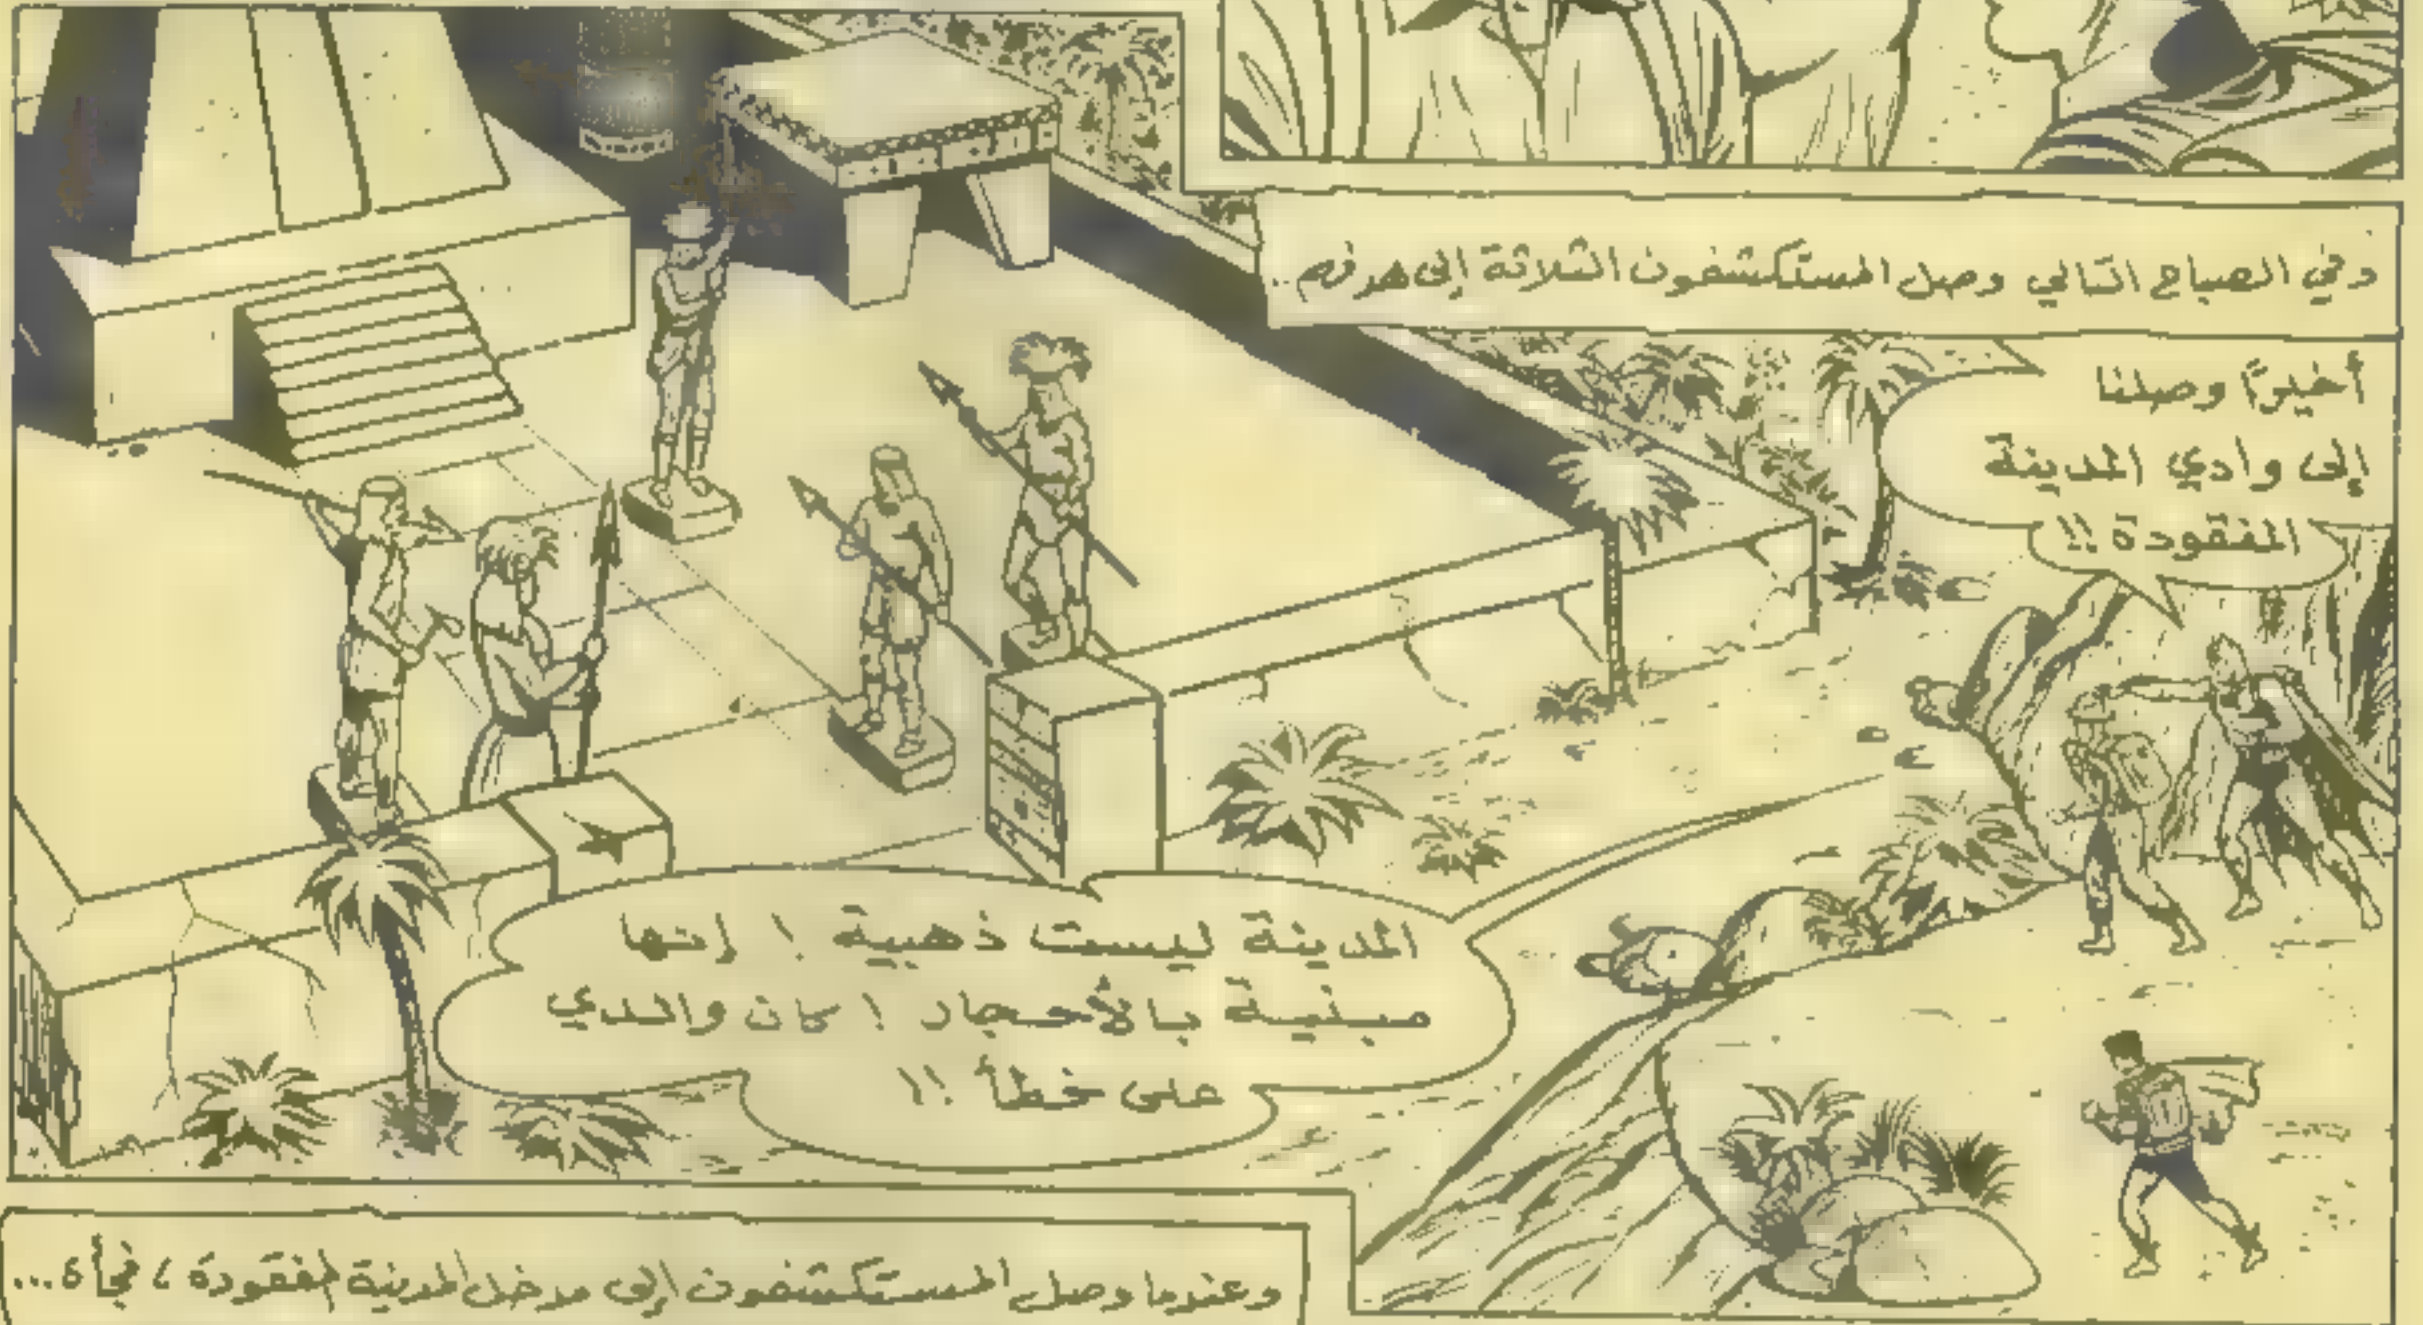 وفي الصباح التالي وصل المستكشفون الثلاثة إلى هدفهم..
أخيرًا وصلنا
إلى وادي المدينة
المفقودة !!
المدينة ليست ذهبية ! إنها
مبنية بالأحجار ! كان والدي
على خطأ !!
وعندما وصل المستكشفون إلى مدخل المدينة المفقودة ، فجأة ...